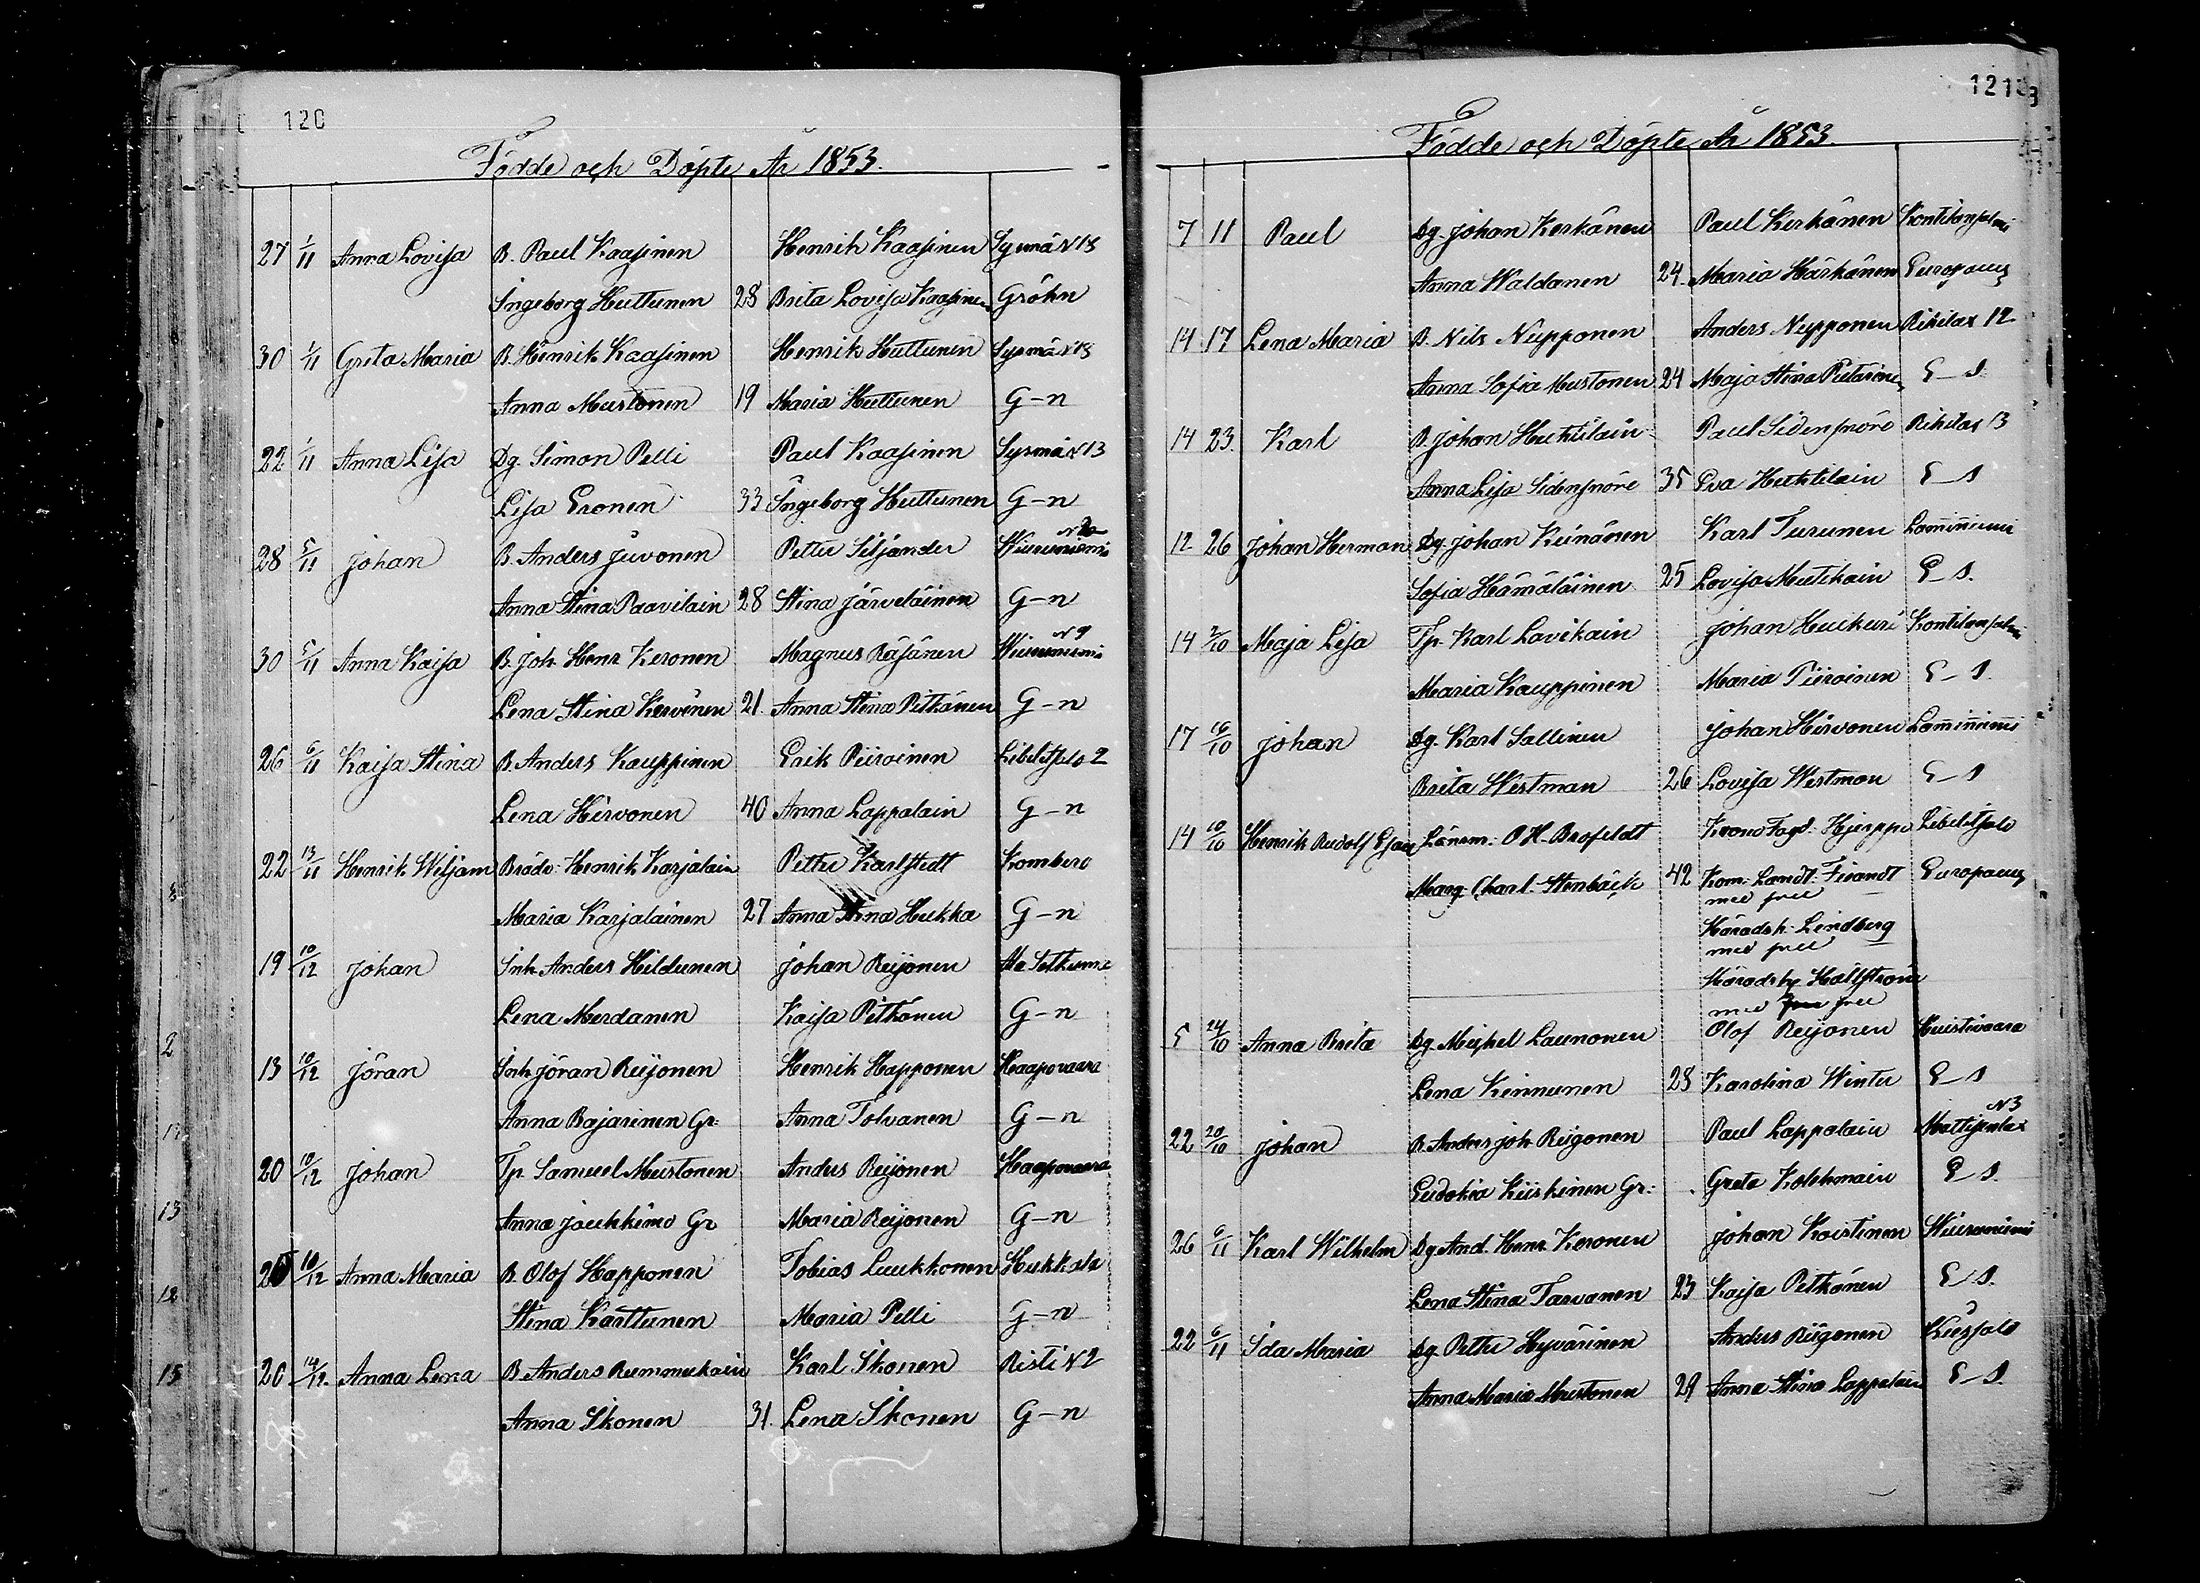 120
Födde och Döpte År 1853.
27 1/11 Anna Lovisa B. Paul Kaasinen Henrik Kaasinen Sysmä N 13
Ingeborg Huttunen 28 Brita Lovisa Kaasinen Gröhn
30 1/11 Greta Maria B. Henrik Kaasinen Henrik Huttunen Sysmä N 13
Anna Mustonen 19 Maria Huttunen G-n
22 1/11 Anna Lisa Dg. Simon Pelli Paul Kaasinen Sysmä N 13
Lisa Eronen 33 Ingeborg Huttunen G-n
28 5/11 Johan B. Anders Juvonen Petter Siljander Wiiniemi
Anna Stina Paavilain 28 Stina Järveläinen G-n
30 5/11 Anna Kaisa B. Joh. Henr Keronen Magnus Räsänen N 9
Lena Stina Karvinen 21. Anna Stina Pitkänen G-n
26 6/11 Kaisa Stina B. Anders Kauppinen Erik Piiroinen Libelitsalo 2
Lena Hirvonen 40 Anna Lappalain G-n
22 13/11 Henrik Wiljam Henrik Karjalain Petter Karlstedt Kombero
Maria Karjalainen 27 Anna Stina Hukka G-n
19 10/12 Johan Inh. Anders Hildunen Johan Reijonen
Lena Merdanen Kaisa Pitkänen G-n
13 10/12 Jöran Inh Jöran Reijonen Henrik Happonen Haapovaara
Anna Bajarinen Gr: Anna Tolvanen G-n
20 10/12 Johan Tp. Samuel Mustonen Anders Reijonen Haapovaara
Anna Jaukkimo Gr Maria Reijonen G-n
10/12 Anna Maria B. Olof Happonen Tobias Luukkonen Hukkala
Stina Karttunen Maria Pelli G-n
20 14/12. Anna Lena B. Anders Rummukain Karl Ikonen Risti N 2
Anna Ikonen 31. Lena Ikonen G-n
121
Födde och Döpte År 1853.
7 11 Paul Dg. Johan Kerkänen Paul Kerkänen Kontilansalmi
Anna Waldanen 24. Maria Härkänen Europaeus
14 17 Lena Maria B. Nils Nupponen Anders Nupponen Rikilax 12
Anna Sofia Mustonen 24 Maja Stina Pietarine E-s.
14 23. Karl B. Johan Huhtilain Paul Sidensnöre Rikilax 13
Anna Lisa Sidensnöre 35 Eva Huhtilain E-s
12 26 Johan Herman Dg. Johan Keinänen Karl Turunen Laminniemi
Sofia Hämäläinen 25 Lovisa Mutikain E-s.
14 2/10 Maja Lisa Tp. Karl Lavikain Johan Huikuri Kontilansalmi
Maria Kauppinen Maria Piiroinen E-s.
17 16/10 Johan Dg. Karl Sallinen Johan Hirvonen Laminniemi
Brita Westman 26 Lovisa Westman E-s
14 10/10 Henrik Rudolf Länsm: O H. Brofeldt Krono Fogd. Hjerppe Libelitsalo
Marg. Charl. Stenbäck 42 Kom. Landt. Fieandt Europaeus
med fru
Häradsh. Lindberg
med fru
Häradsh Hällström
med fru
5 24/10 Anna Brita Dg. Mikkel Launonen Olof Reijonen Huistivaara
Lena Kinnunen 28 Karolina Winter E-s
22 20/10 Johan B. Anders Joh. Riigonen Paul Lappalain Mattisenlax N 3
Eudokia Kiiskinen Gr: Greta Kolehmain E-s.
26 6/11 Karl Wilhelm Dg. And. Henr. Keronen Johan Koistinen
Lena Stina Tarvanen 23 Kaisa Pitkänen E-s.
22 6/11 Ida Maria Dg. Petter Hyvärinen Anders Riigonen
Anna Maria Mustonen 29 Anna Stina Lappalain E-s.
2
13
12
15